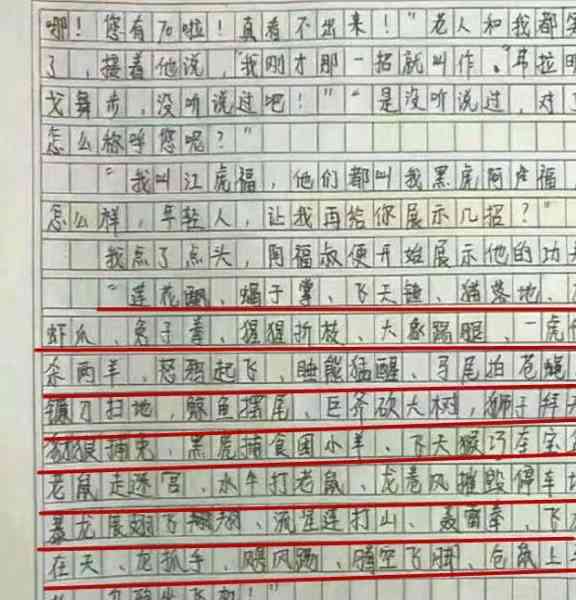 哪！您有70啦！真看不出来！"老人和我都
了，接着他说，"我刚才那一招就叫作。弗拉明
戈舞步，没听说过吧！""是没听说过，对了
怎么称呼您呢？"
"我叫江虎福，他们都叫我黑虎阿虎福
怎么样，年轻人，让我再给你展示几招？"
我点了点头，阿福叔便开始展示他的功夫
"莲花飘、蝎子掌、飞天锤、猫落地、
虾爪、兔子拳、猩猩折枝、大象踢腿、一虎
杀两羊、怒鸦起飞、睡熊猛醒、马尾拍苍蝇
镰刀扫地，鲸鱼摆尾、巨斧砍大树，狮子拜天
捕兔、黑虎捕食困小羊、飞天猴巧夺宝
老鼠走迷宫、水牛打老鼠、龙卷风摧毁停车场
暴龙展翅飞翱翔、流星连打山、轰雷拳、飞
在天、龙抓手、飓风踢、腾空飞脚、仓鼠上